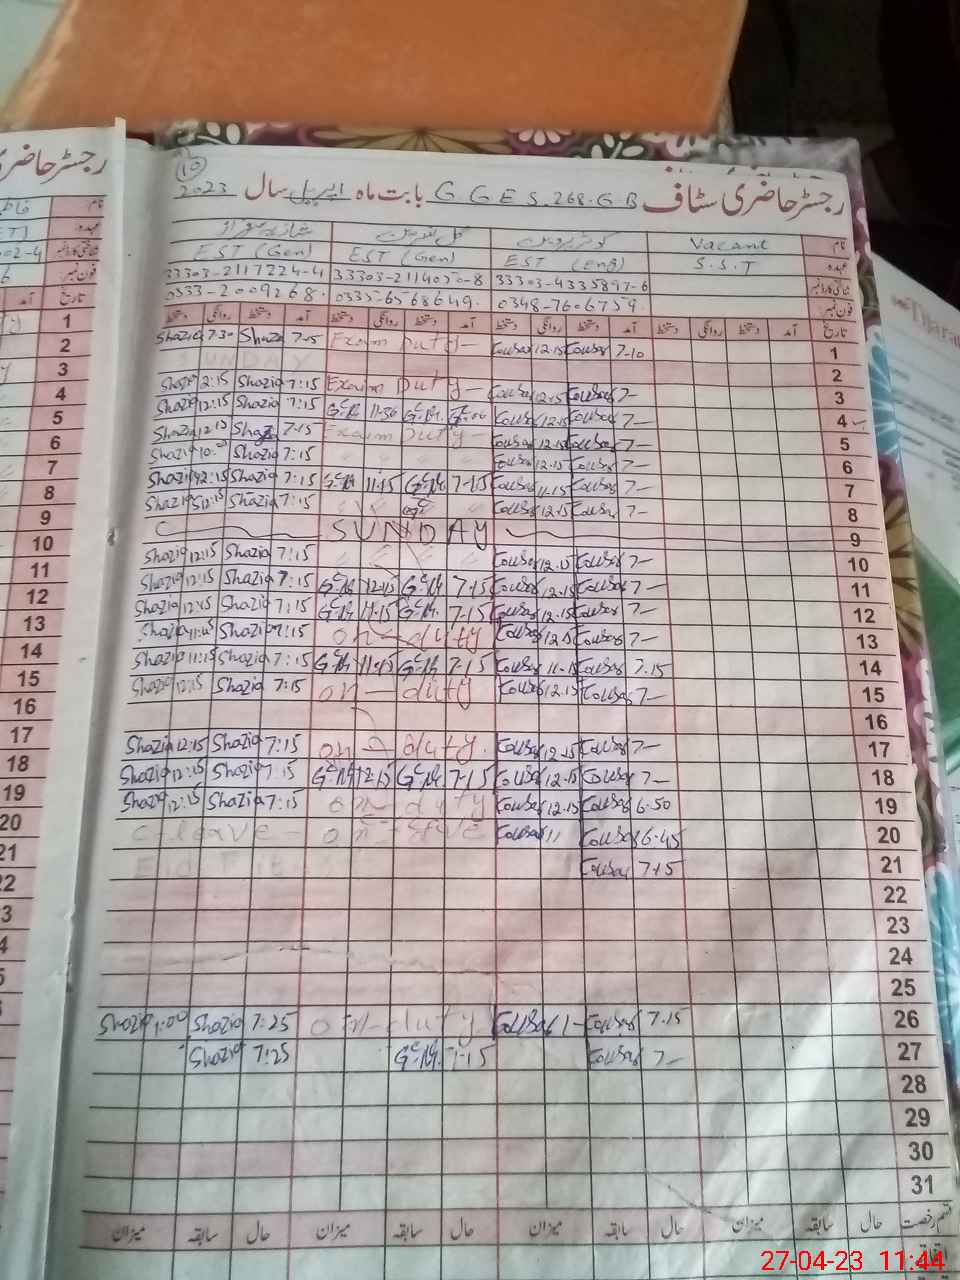 رجسٹر حاضری سٹاف G G E S 268.G B بابت ماہ اپریل سال 2023
10
نام Vacant کوثر پروین گل نسرین شازیہ سرفراز
عہدہ S.S.T EST (Eng) EST (Gen) EST (Gen)
شناختی کارڈ نمبر 33303-4335897-6 33303-2114050-8 33303-2117224-4
فون نمبر 0348-7606759. 0335-6568649. 0333-2009268.
تاریخ آمد دستخط روانگی دستخط آمد دستخط روانگی دستخط آمد دستخط روانگی دستخط آمد دستخط روانگی دستخط
Shazia 7-30 Shazia 7-15 Exam Duty Kousar 12-15 Kousar 7-10 1
SUNDAY 2
Shazia 2:15 Shazia 7:15 Exam Duty Kousar 12-15 Kousar 7- 3
Shazia 12:15 Shazia 7:15 G.N. 11-30 G.N. Kousar 12-15 Kousar 7- 4
Shazia 12:15 Shazia 7-15 Exam Duty Kousar 12-15 Kousar 7- 5
Shazia Shazia 7:15 Kousar 12-15 Kousar 7- 6
Shazia 12:15 Shazia 7:15 G.N. 11-15 G.N. 7-15 Kousar 11-15 Kousar 7- 7
Shazia 12:15 Shazia 7:15 Kousar 12-15 Kousar 7- 8
SUNDAY 9
Shazia 12:15 Shazia 7:15 Kousar 12-15 Kousar 7- 10
Shazia 12:15 Shazia 7:15 G.N. 12-15 G.N. 7-15 Kousar 12-15 Kousar 7- 11
Shazia 12:15 Shazia 7:15 G.N. 11-15 G.N. 7-15 Kousar 12-15 Kousar 7- 12
Shazia 11:15 Shazia 7:15 on-duty Kousar 12-15 Kousar 7- 13
Shazia 11:15 Shazia 7:15 G.N. 11-15 G.N. 7-15 Kousar 11-15 Kousar 7-15 14
Shazia 12:15 Shazia 7:15 on-duty Kousar 12-15 Kousar 7- 15
16
Shazia 12:15 Shazia 7:15 on duty. Kousar 12-15 Kousar 7- 17
Shazia 12:15 Shazia 7:15 G.N. 12-15 G.N. 7-15 Kousar 12-15 Kousar 7- 18
Shazia 12:15 Shazia 7:15 on-duty Kousar 12-15 Kousar 6-50 19
C-leave - on - leave Kousar 11 Kousar 6-45 20
Kousar 7-15 21
22
23
24
25
Shazia 1:00 Shazia 7:25 on-duty Kousar 1- Kousar 7-15 26
Shazia 7:25 G.N. 7-15 Kousar 7- 27
28
29
30
31
قسم رخصت حال سابقہ میزان حال سابقہ میزان حال سابقہ میزان حال سابقہ میزان
رجسٹر حاضری
نام
عہدہ
شناختی کارڈ نمبر
فون نمبر
تاریخ آمد
1
2
3
4
5
6
7
8
9
10
11
12
13
14
15
16
17
18
19
20
21
22
27-04-23 11:44